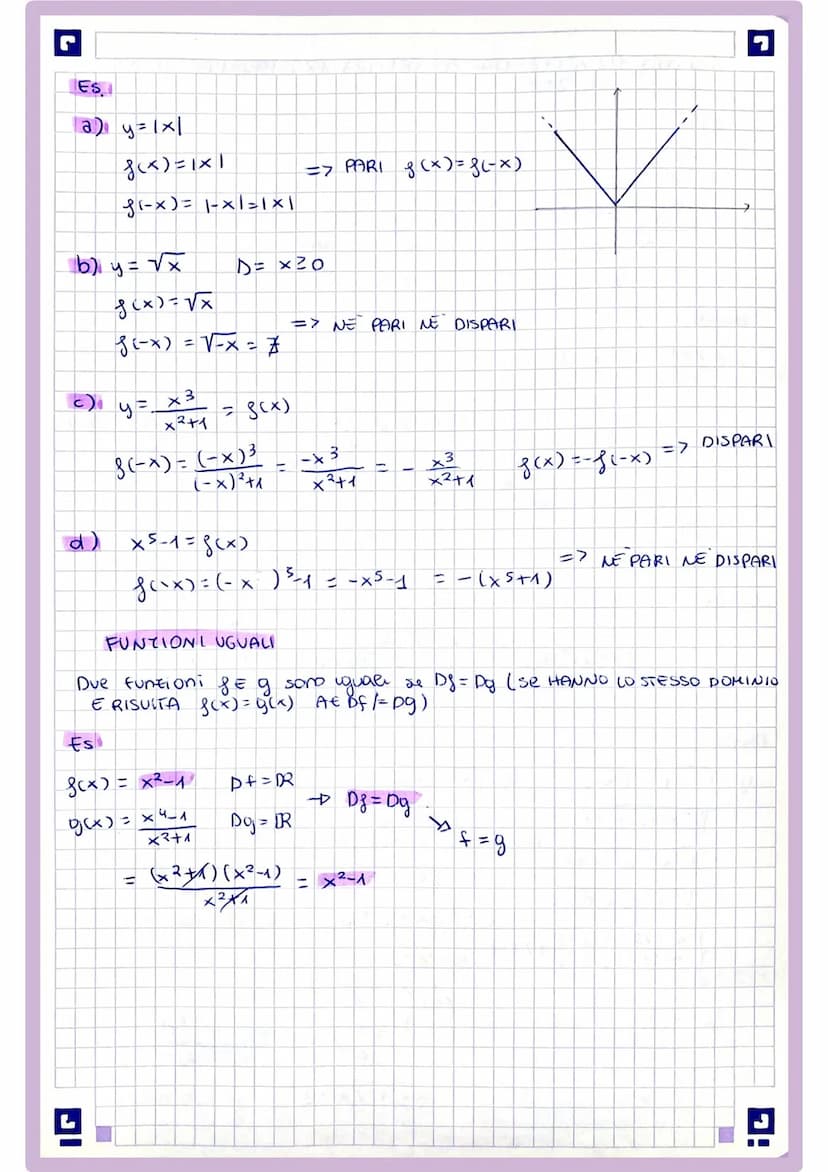 Es.
a) y = |x|
f(x) = |x| => PARI f(x) = f(-x)
f(-x) = |-x| = |x|
b) y = √x D = x ≥ 0
f(x) = √x
=> NÉ PARI NÉ DISPARI
f(-x) = √-x = ∄
c) y = x³/(x²+1) = f(x)
f(-x) = (-x)³/((-x)²+1) = -x³/(x²+1) = - x³/(x²+1) f(x) = -f(-x) => DISPARI
d) x⁵-1 = f(x)
f(-x) = (-x )⁵-1 = -x⁵-1 = -(x⁵+1) => NÉ PARI NÉ DISPARI
FUNZIONI UGUALI
Due funzioni f E g sono uguali se Df = Dg (SE HANNO LO STESSO DOMINIO
E RISULTA f(x) = g(x) A∈ Df/=Dg)
Es
f(x) = x²-1 Df = ℝ
-> Df = Dg
g(x) = (x⁴-1)/(x²+1) Dg = ℝ
f = g
= (x²+1)(x²-1)/(x²+1) = x²-1